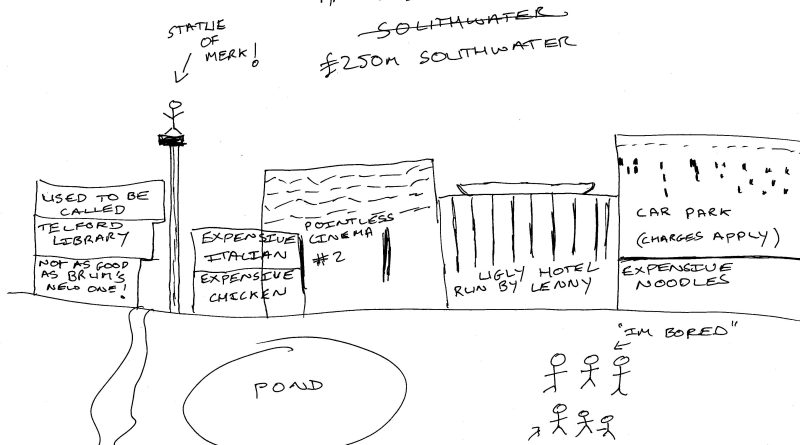 SOUTHWATER
£250M SOUTHWATER
STATUE
OF
MERK!
USED TO BE
CALLED
TELFORD
LIBRARY
NOT AS GOOD
AS BRUM'S
NEW ONE!
EXPENSIVE
ITALIAN
EXPENSIVE
CHICKEN
POINTLESS
CINEMA
#2
UGLY HOTEL
RUN BY LENNY
CAR PARK
(CHARGES APPLY)
EXPENSIVE
NOODLES
"IM BORED"
POND